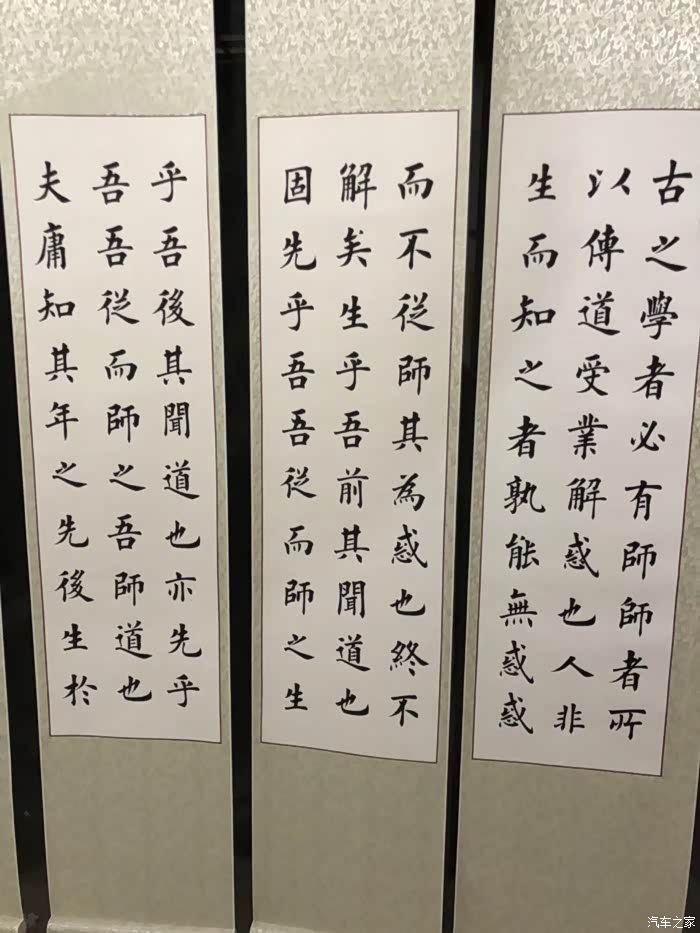 古之學者必有師師者所
以傳道受業解惑也人非
生而知之者孰能無惑惑
而不從師其為惑也終不
解矣生乎吾前其聞道也
固先乎吾吾從而師之生
乎吾後其聞道也亦先乎
吾吾從而師之吾師道也
夫庸知其年之先後生於
汽车之家